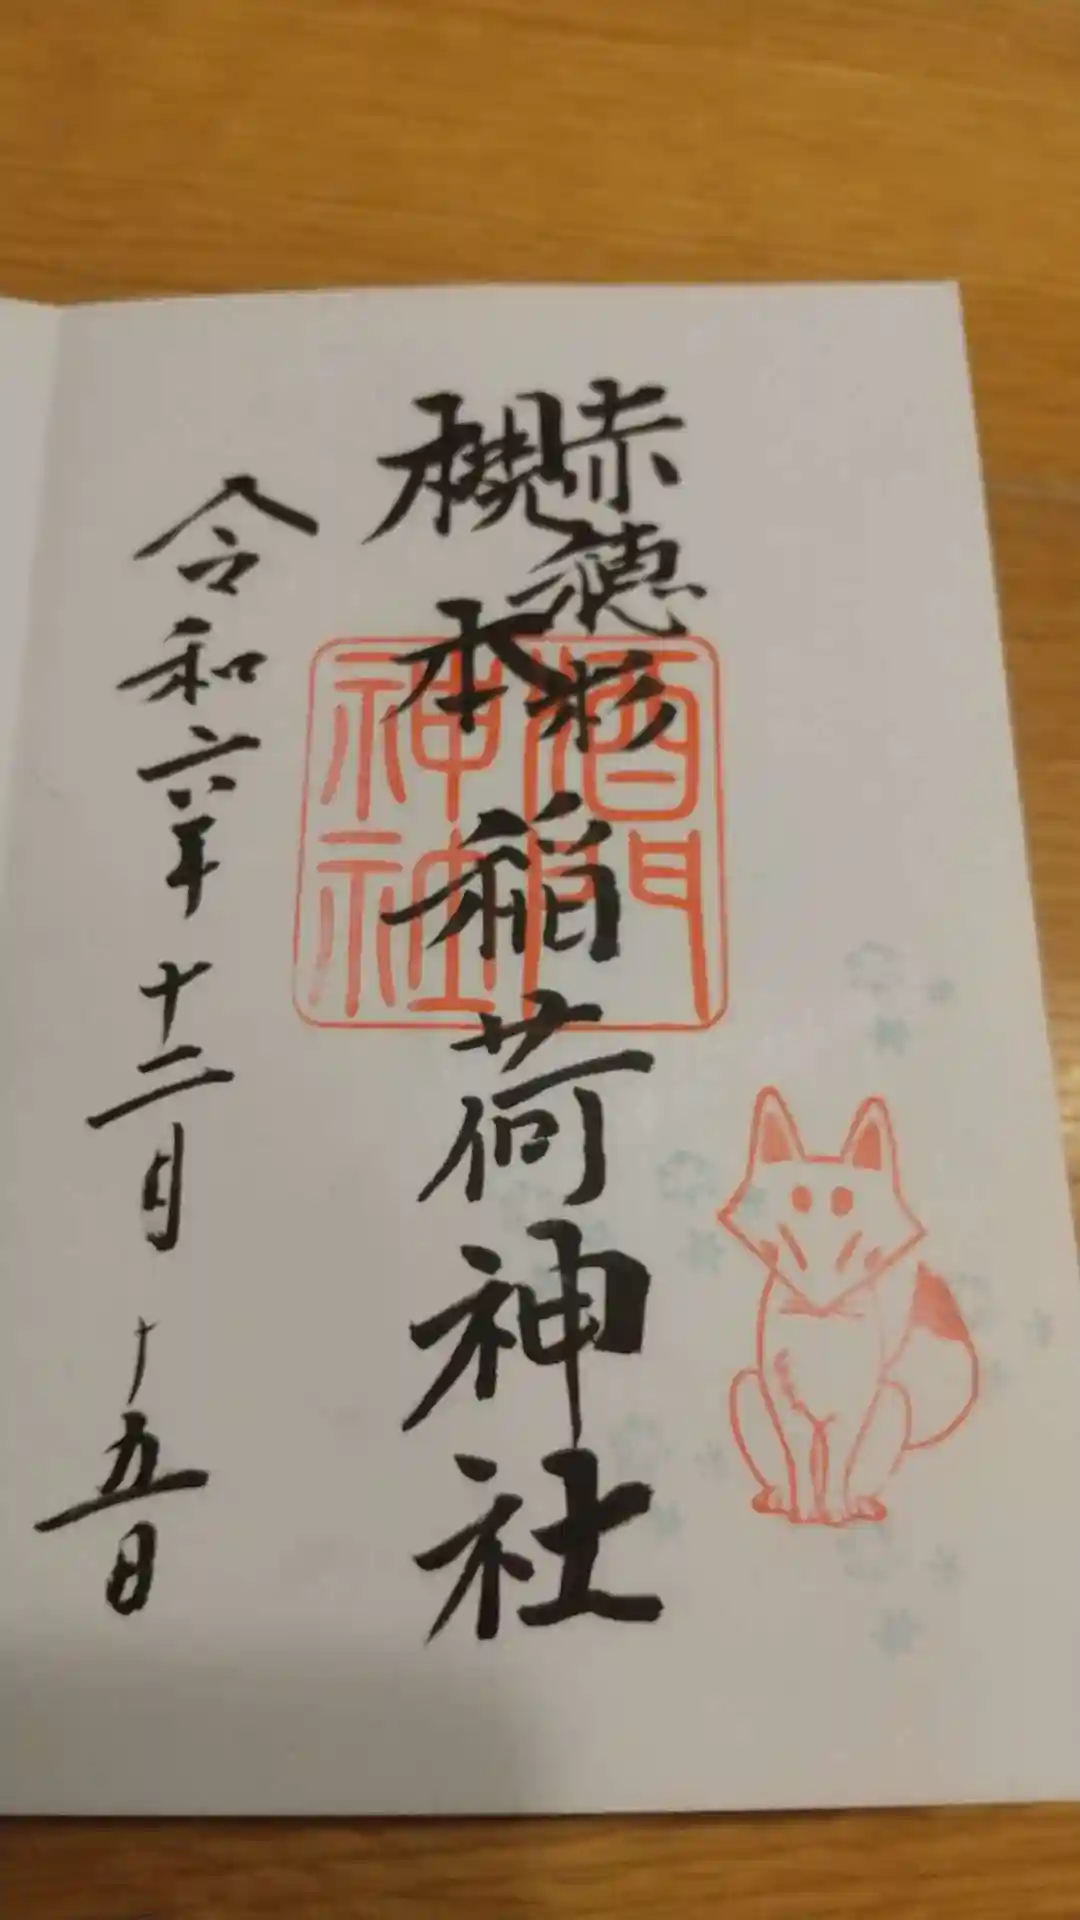 赤穂
槻本稲荷神社
令和六年十二月十五日
酒門
神社